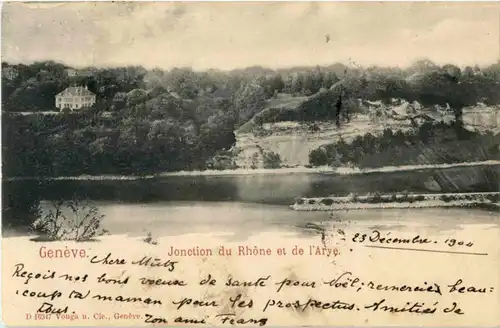 Genève.
Jonction du Rhône et de l'Arve.
23 Décembre. 1904
Chere Mütz
Reçois nos bons voeuse de santé pour Noël; remerciez beau-
coup ta maman pour les prospectus. Amitiés de
tous.
Ton ami Franz
D 10347 Vouga u. Cie., Genève.